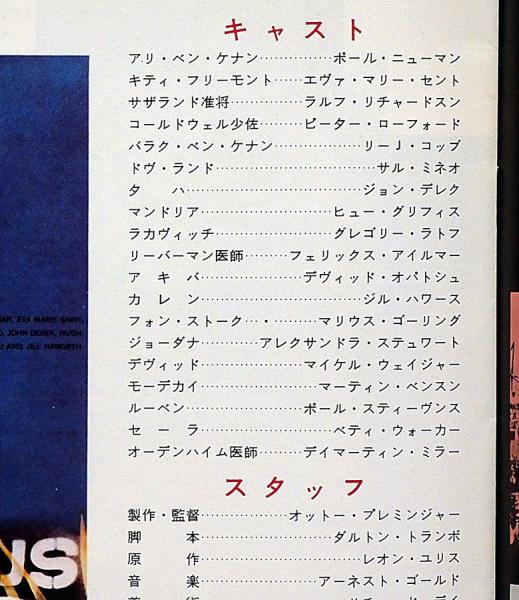 キャスト
アリ・ベン・ケナン……………ポール・ニューマン
キティ・フリーモント……エヴァ・マリー・セント
サザランド准将……………ラルフ・リチャードスン
コールドウェル少佐………ピーター・ローフォード
バラク・ベン・ケナン……………リーJ・コッブ
ドヴ・ランド……………………サル・ミネオ
タハ……………………ジョン・デレク
マンドリア……………………ヒュー・グリフィス
ラカヴィッチ………………グレゴリー・ラトフ
リーバーマン医師………フェリックス・アイルマー
アキバ………………デヴィッド・オパトシュ
カレン……………………ジル・ハワース
フォン・ストーク…………マリウス・ゴーリング
ジョーダナ…………アレクサンドラ・ステュワート
デヴィッド……………マイケル・ウェイジャー
モーデカイ………………マーティン・ベンスン
ルーベン………………ポール・スティーヴンス
セーラ……………………ベティ・ウォーカー
オーデンハイム医師………デイマーティン・ミラー
スタッフ
製作・監督………………オットー・プレミンジャー
脚本……………………ダルトン・トランボ
原作……………………レオン・ユリス
音楽………………アーネスト・ゴールド
EVA MARIE SAINT,
JOHN DEREK, HUGH
AND JILL HAWORTH
US